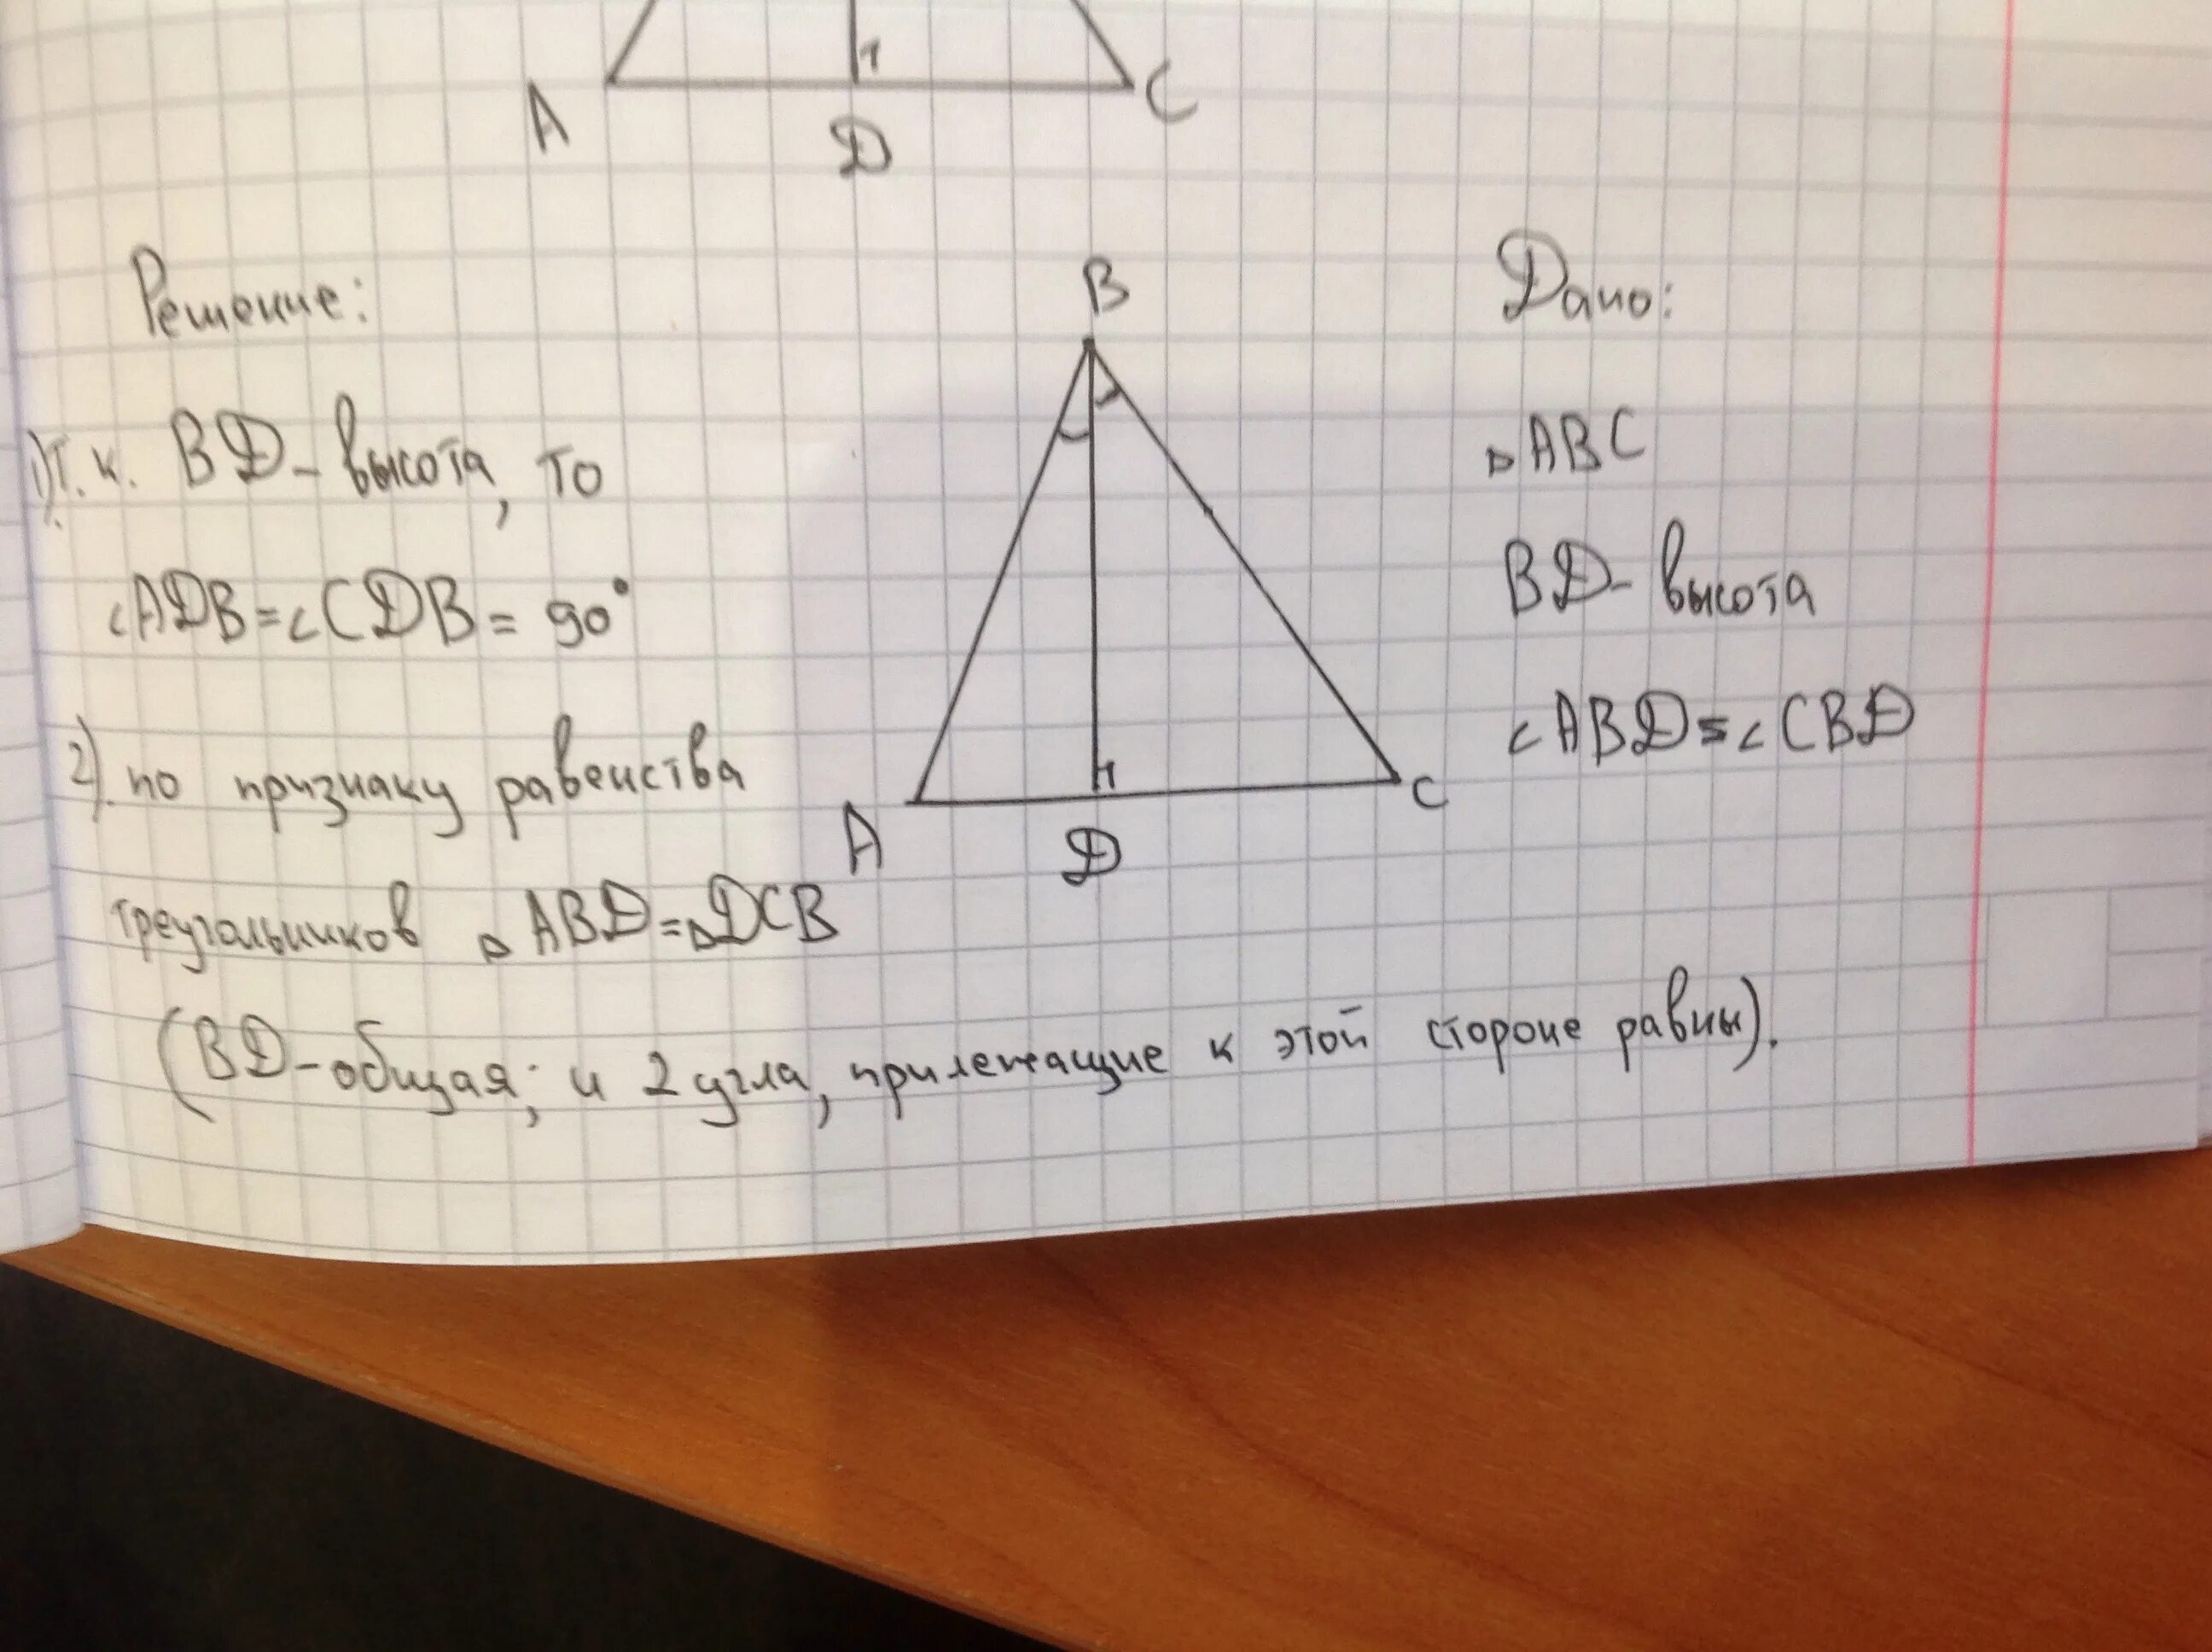 A
D
C
Решение:
1) Т.к. BD - высота, то
∠ADB = ∠CDB = 90°
2). по признаку равенства
треугольников ▵ABD = ▵DCB
(BD - общая; и 2 угла, прилежащие к этой стороне равны).
B
A
D
C
Дано:
▵ABC
BD - высота
∠ABD = ∠CBD